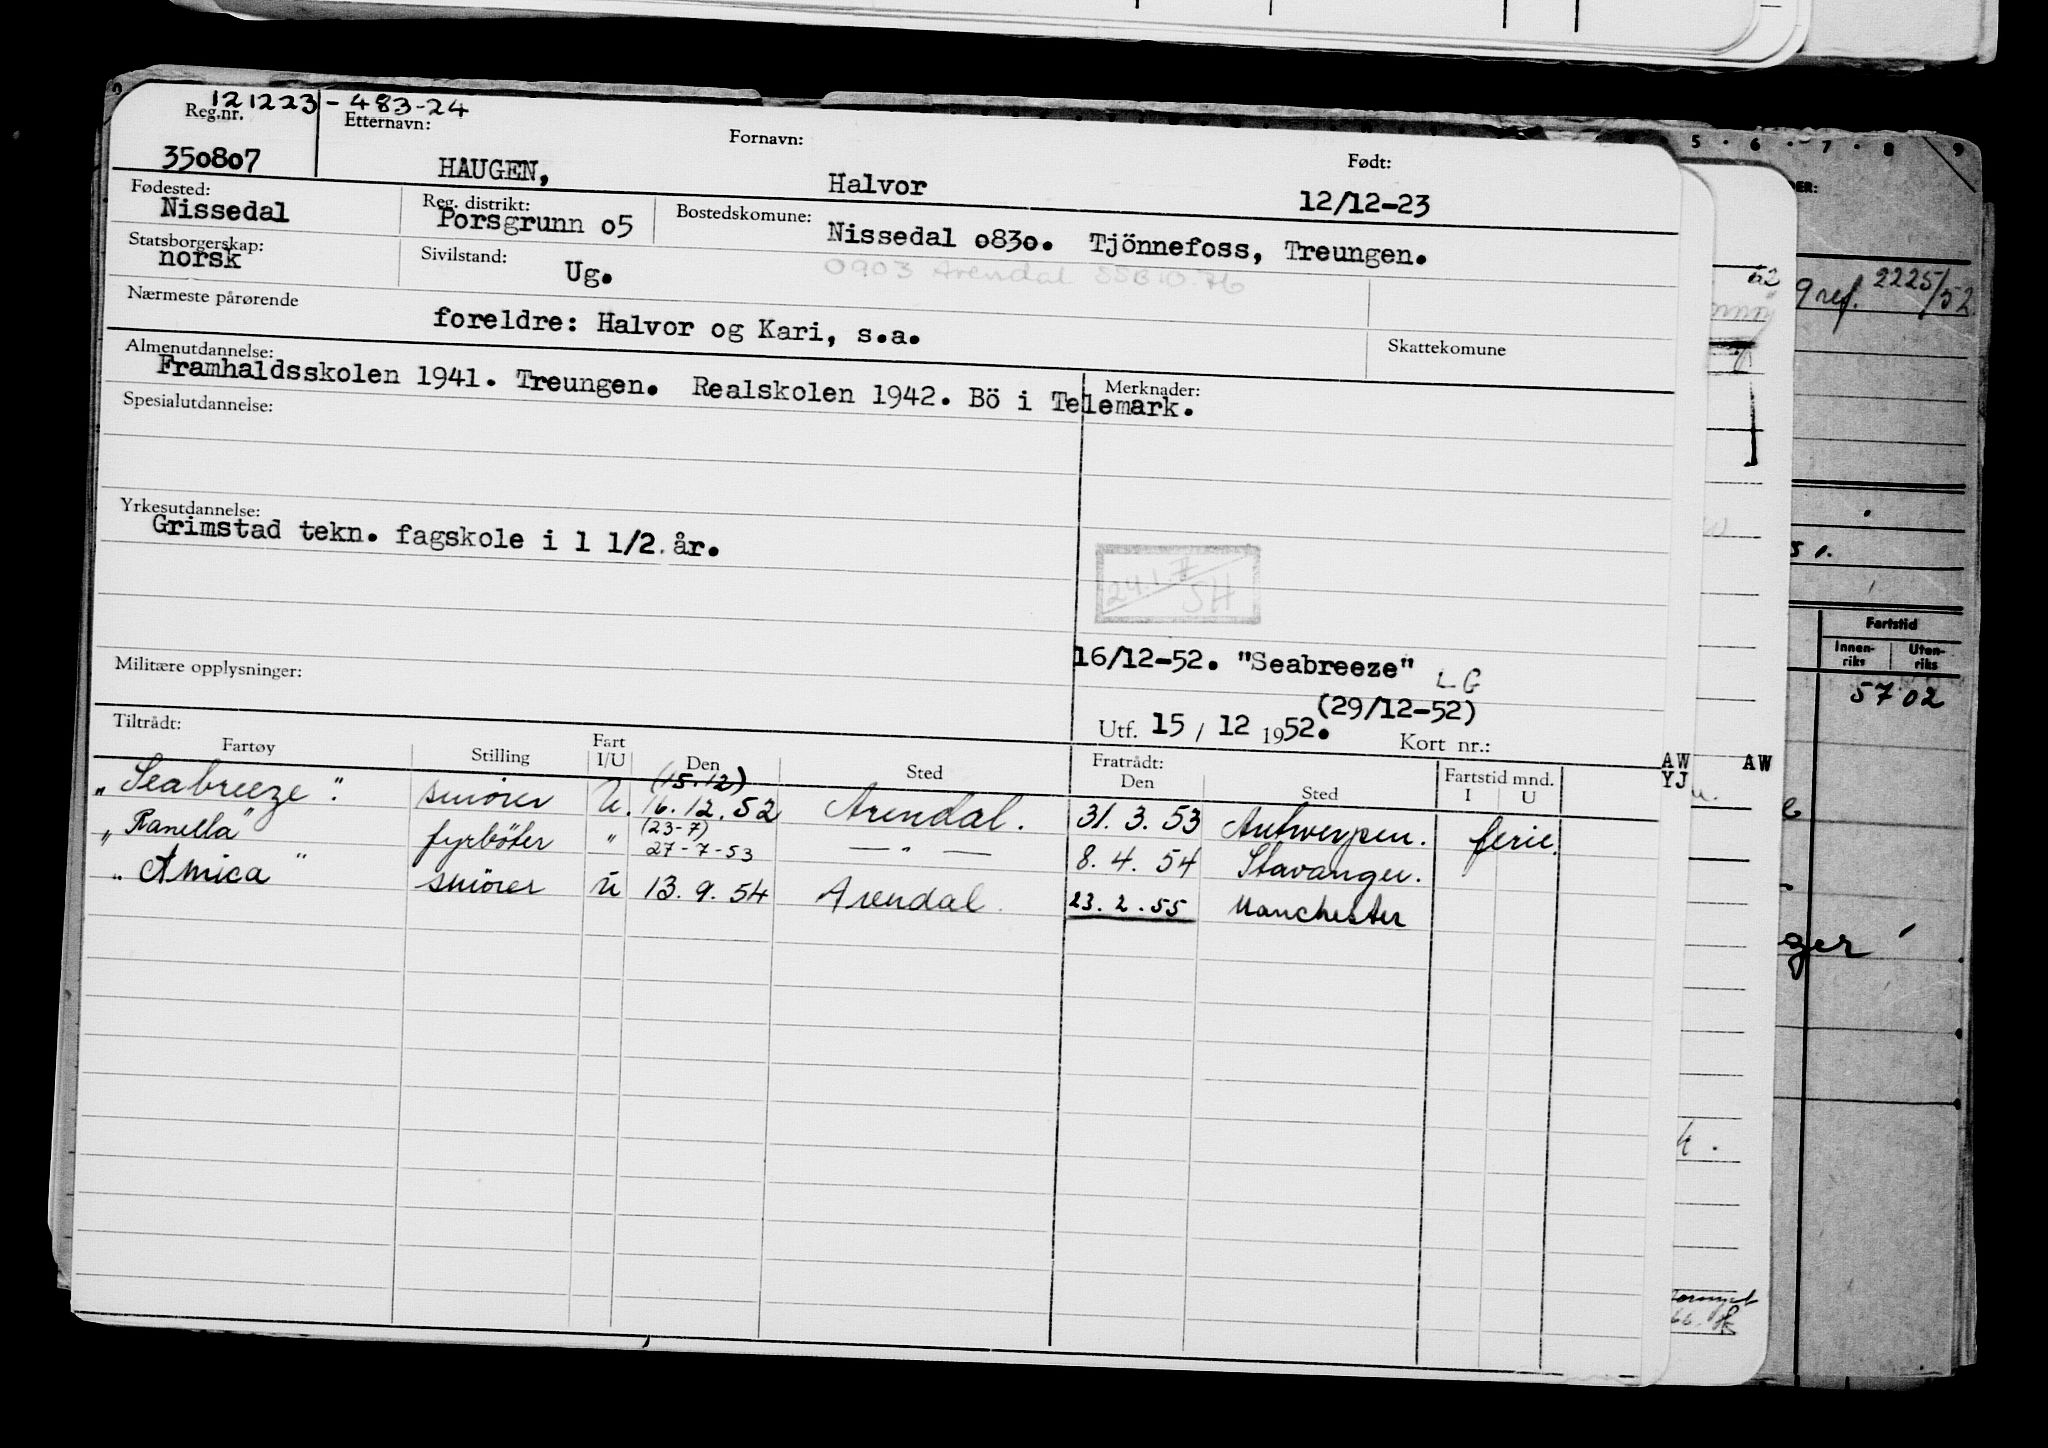 121223-483-24
Reg.nr. Etternavn: Fornavn: Født:
350807 HAUGEN, Halvor 12/12-23
Fødested: Reg. distrikt: Bostedskomune:
Nissedal Porsgrunn o5 Nissedal o83o. Tjönnefoss, Treungen.
Statsborgerskap: Sivilstand:
norsk Ug. 0903 Arendal SSB 10.76
Nærmeste pårørende Skattekomune
foreldre: Halvor og Kari, s.a.
Almenutdannelse: Merknader:
Framhaldsskolen 1941. Treungen. Realskolen 1942. Bö i Telemark.
Spesialutdannelse:
Yrkesutdannelse:
Grimstad tekn. fagskole i 1 1/2 år.
16/12-52. "Seabreeze" LG
Militære opplysninger:
(29/12-52)
Tiltrådt: Utf. 15 / 12 1952. Kort nr.:
Fartøy Stilling Fart I/U Den Sted Fratrådt: Den Sted Fartstid mnd. I U
(15.12)
"Seabreeze". smörer U. 16.12.52 Arendal. 31.3.53 Antwerpen. ferie.
(23-7)
"Ranella" fyrböter " 27-7-53 — " — 8.4.54 Stavanger.
"Amica" smörer U 13.9.54 Arendal. 23.2.55 Manchester
AW AW
YJ
5 . 6 . 7 . 8 9
9 ref. 2225/52
Fartstid
Innen-riks Uten-riks
57 02